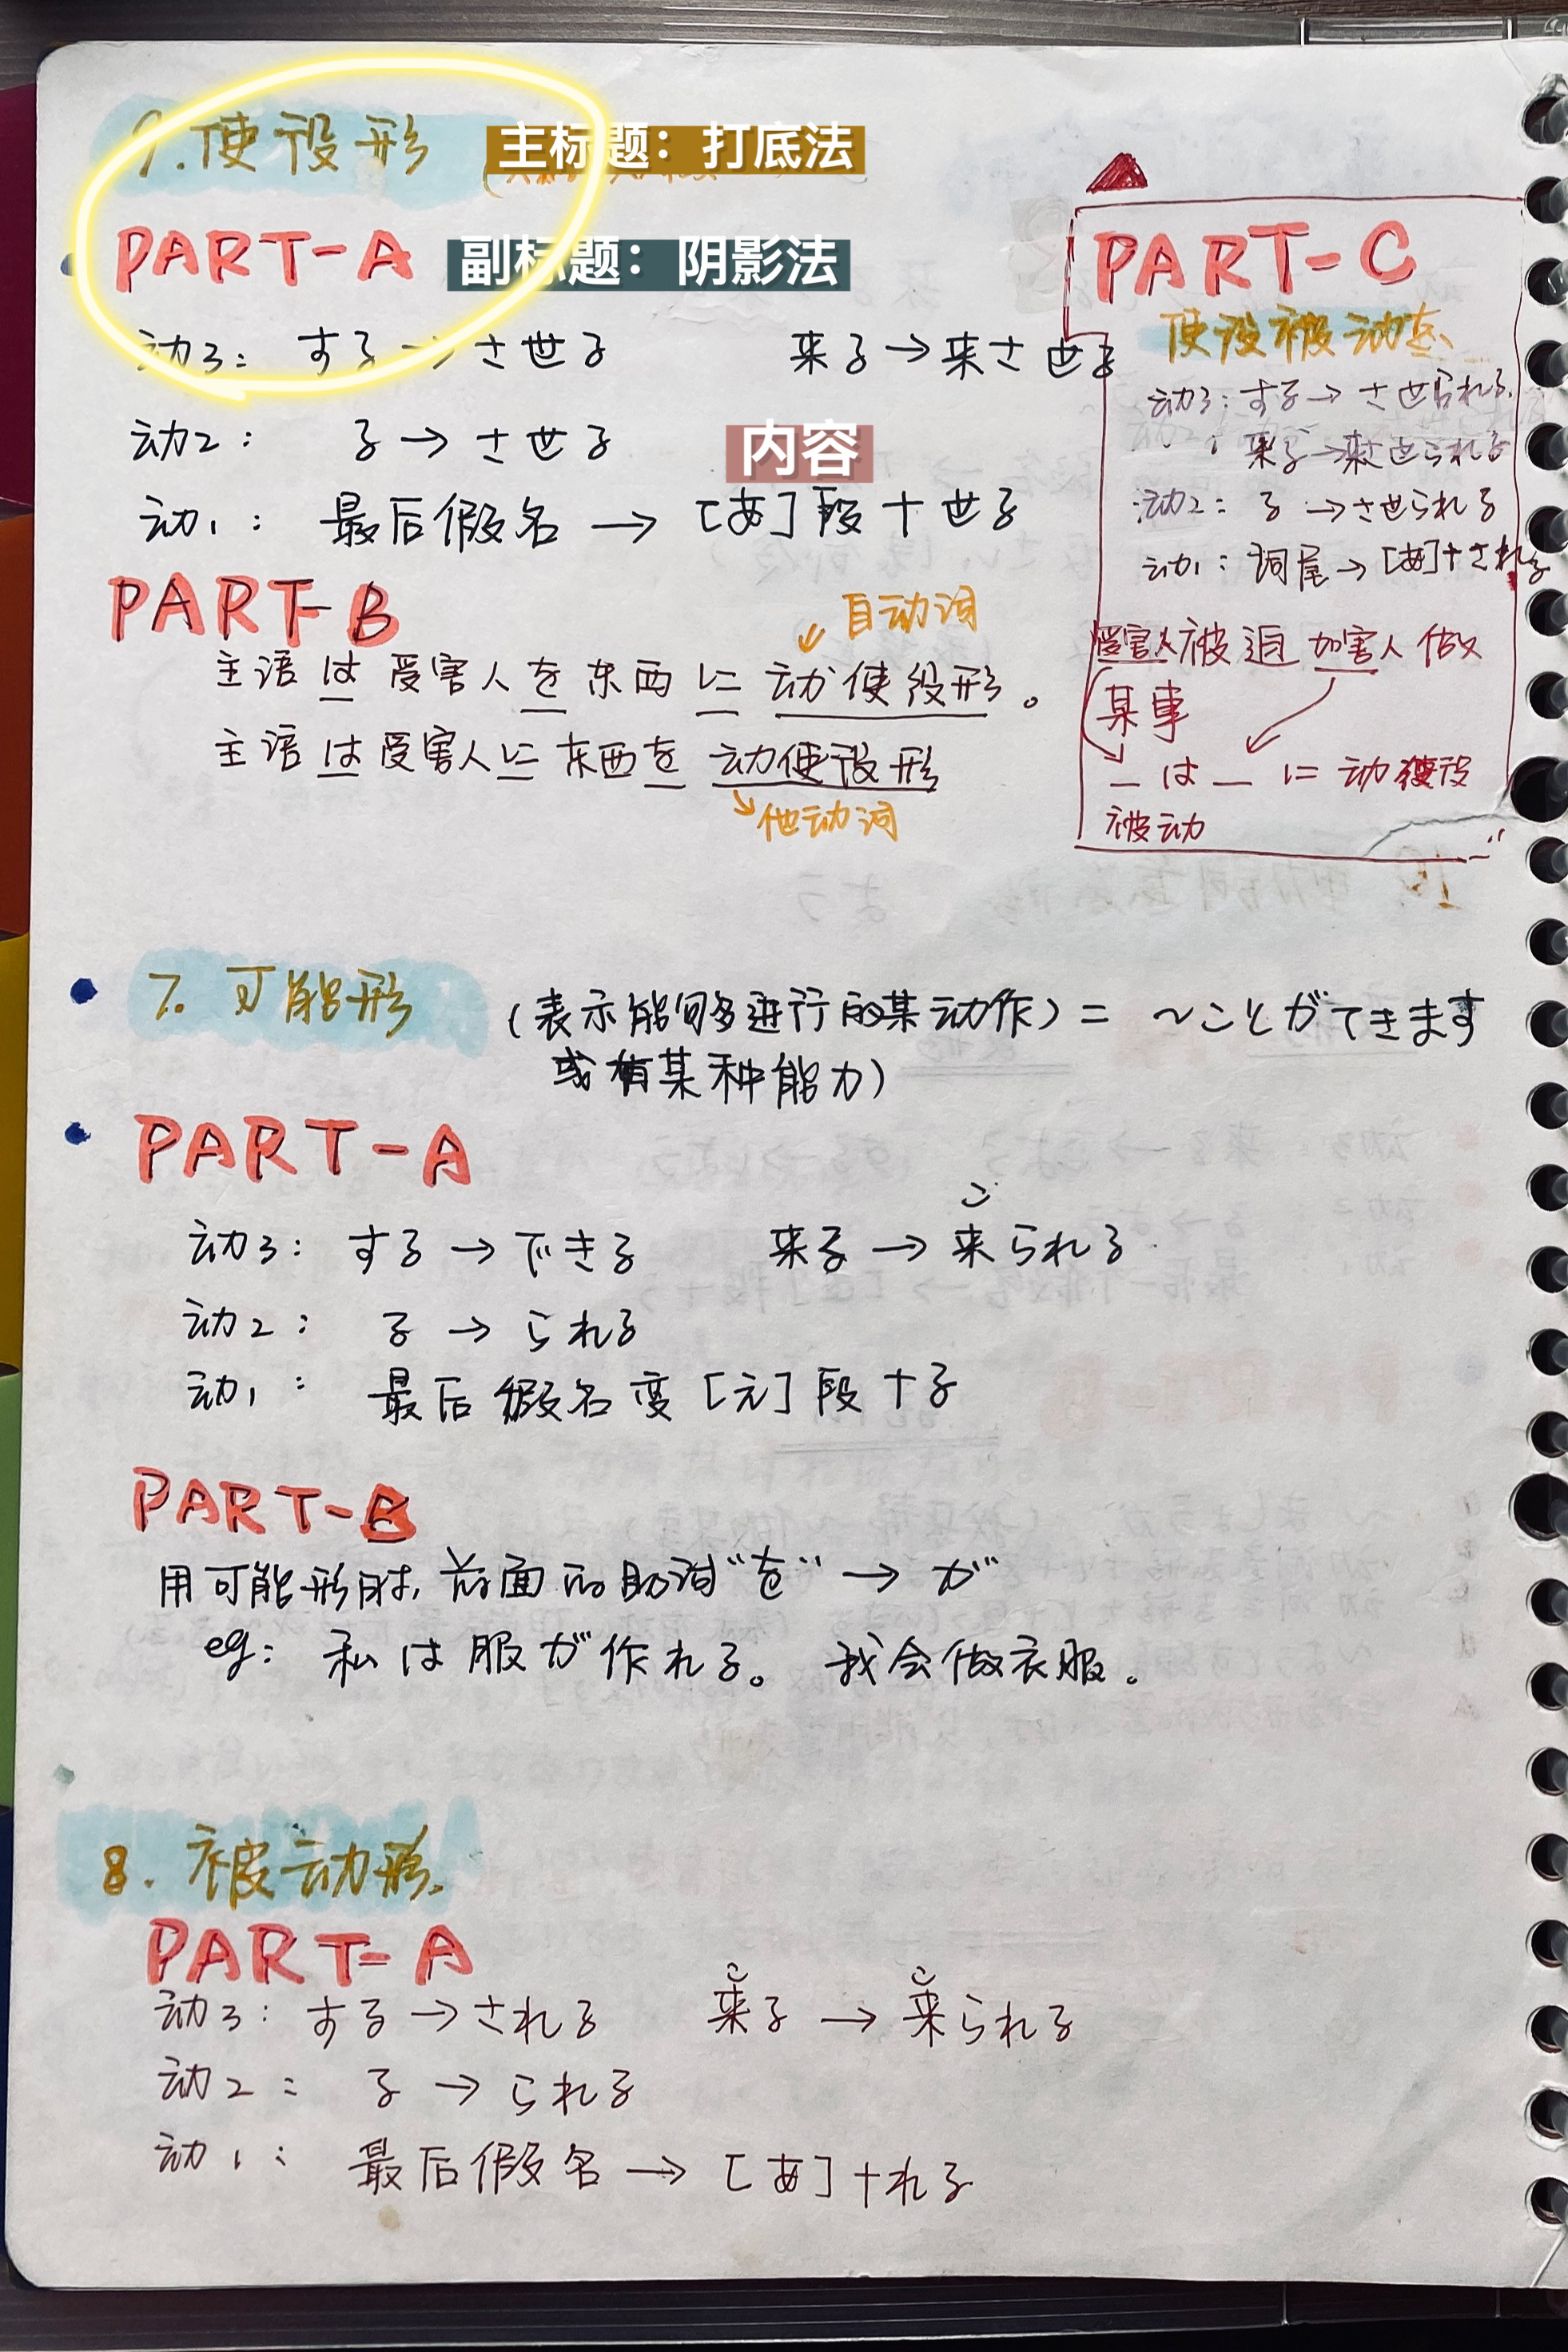 9.使役形
主标题：打底法
PART-A
副标题：阴影法
动3: する→させる 来る→来させる
动2: る→させる
内容
动1: 最后假名→[あ]段+せる
PART-B
自动词
主语は受害人を东西に动使役形。
主语は受害人に东西を动使役形
他动词
PART-C
使役被动态
动3:する→させられる
来る→来させられる
动2:る→させられる
动1:词尾→[あ]+される
受害人被迫加害人做
某事
_は_に动使役
被动
7.可能形 (表示能够进行的某动作)=~ことができます
或有某种能力)
PART-A
动3: する→できる 来る→来られる
こ
动2: る→られる
动1: 最后假名变[え]段+る
PART-B
用可能形时,前面的助词"を"→が
eg: 私は服が作れる。 我会做衣服。
8.被动形
PART-A
动3: する→される 来る→来られる
动2: る→られる
动1: 最后假名→[あ]+れる